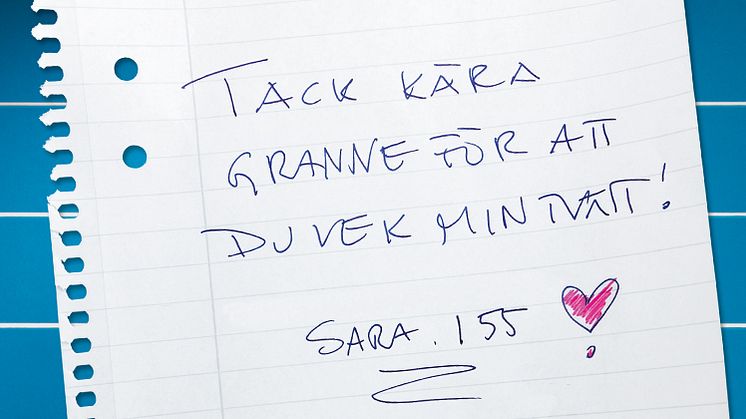 TACK KĀRA
GRANNE FŌR ATT
DU VEK MIN TVĀTT!
SARA. 155